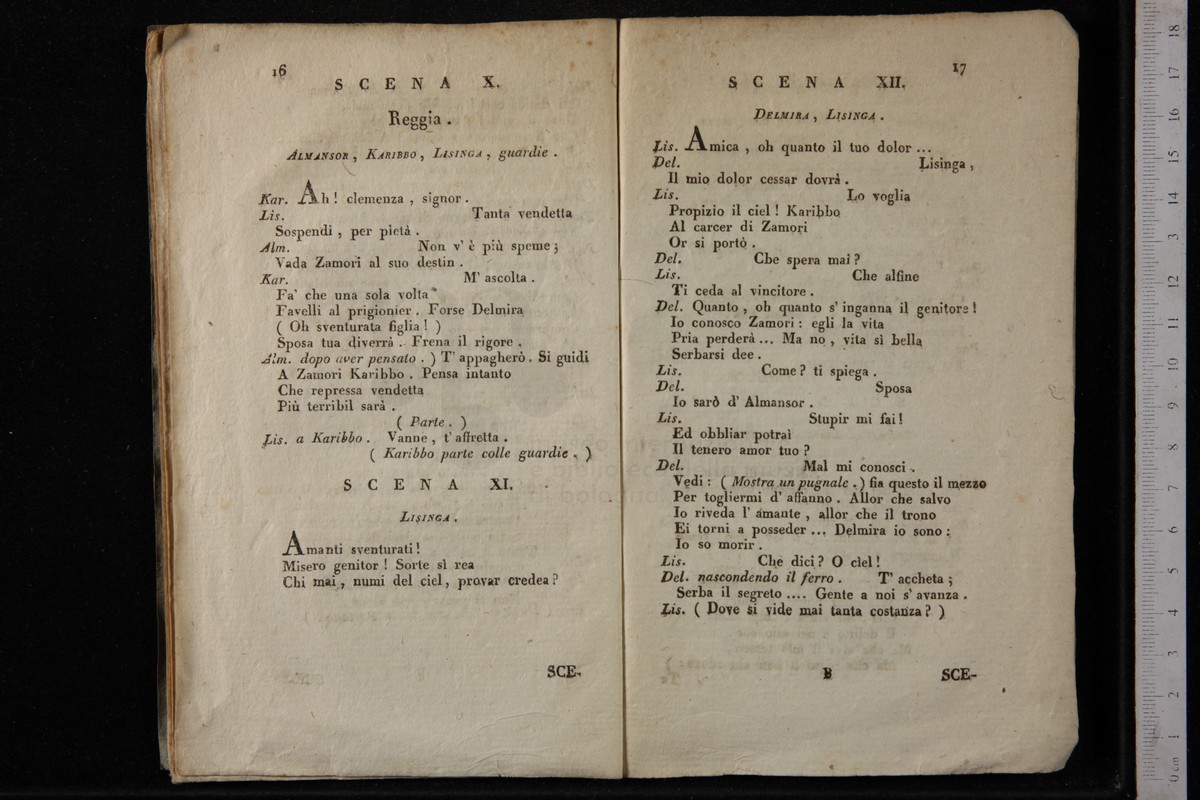 16
SCENA X.
Reggia .
ALMANSOR , KARIBBO , LISINGA , guardie .
Kar. Ah ! clemenza , signor .
Lis. Tanta vendetta
Sospendi , per pietà .
Alm. Non v' è più speme ;
Vada Zamori al suo destin .
Kar. M' ascolta .
Fa' che una sola volta
Favelli al prigionier . Forse Delmira
( Oh sventurata figlia ! )
Sposa tua diverrà . Frena il rigore .
Alm. dopo aver pensato . ) T' appagherò . Si guidi
A Zamori Karibbo . Pensa intanto
Che repressa vendetta
Più terribil sarà .
( Parte . )
Lis. a Karibbo . Vanne , t' affretta .
( Karibbo parte colle guardie . )
SCENA XI.
LISINGA .
Amanti sventurati !
Misero genitor ! Sorte sì rea
Chi mai , numi del ciel , provar credea ?
SCE-
17
SCENA XII.
DELMIRA , LISINGA .
Lis. Amica , oh quanto il tuo dolor ...
Del. Lisinga ,
Il mio dolor cessar dovrà .
Lis. Lo voglia
Propizio il ciel ! Karibbo
Al carcer di Zamori
Or si portò .
Del. Che spera mai ?
Lis. Che alfine
Ti ceda al vincitore .
Del. Quanto , oh quanto s' inganna il genitore !
Io conosco Zamori : egli la vita
Pria perderà ... Ma no , vita sì bella
Serbarsi dee .
Lis. Come ? ti spiega .
Del. Sposa
Io sarò d' Almansor .
Lis. Stupir mi fai !
Ed obbliar potrai
Il tenero amor tuo ?
Del. Mal mi conosci .
Vedi : ( Mostra un pugnale . ) fia questo il mezzo
Per togliermi d' affanno . Allor che salvo
Io riveda l' amante , allor che il trono
Ei torni a posseder ... Delmira io sono :
Io so morir .
Lis. Che dici ? O ciel !
Del. nascondendo il ferro . T' accheta ;
Serba il segreto .... Gente a noi s' avanza .
Lis. ( Dove si vide mai tanta costanza ? )
B
SCE-
0 cm 1 2 3 4 5 6 7 8 9 10 11 12 13 14 15 16 17 18